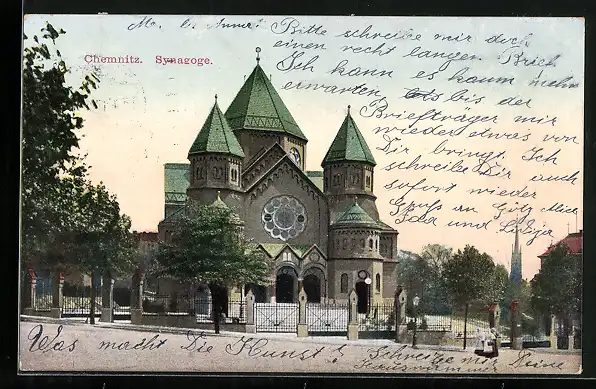 Chemnitz. Synagoge.
Bitte schreibe mir doch
einen recht langen Brief
Ich kann es kaum mehr
erwarten bis der
Briefträger mir
wieder etwas von
Dir bringt. Ich
schreibe Dir auch
sofort wieder
Gruss an Götz, Mici
Ida und
Was macht Die Kunst?
Schreibe mir
Hausnummer Deine